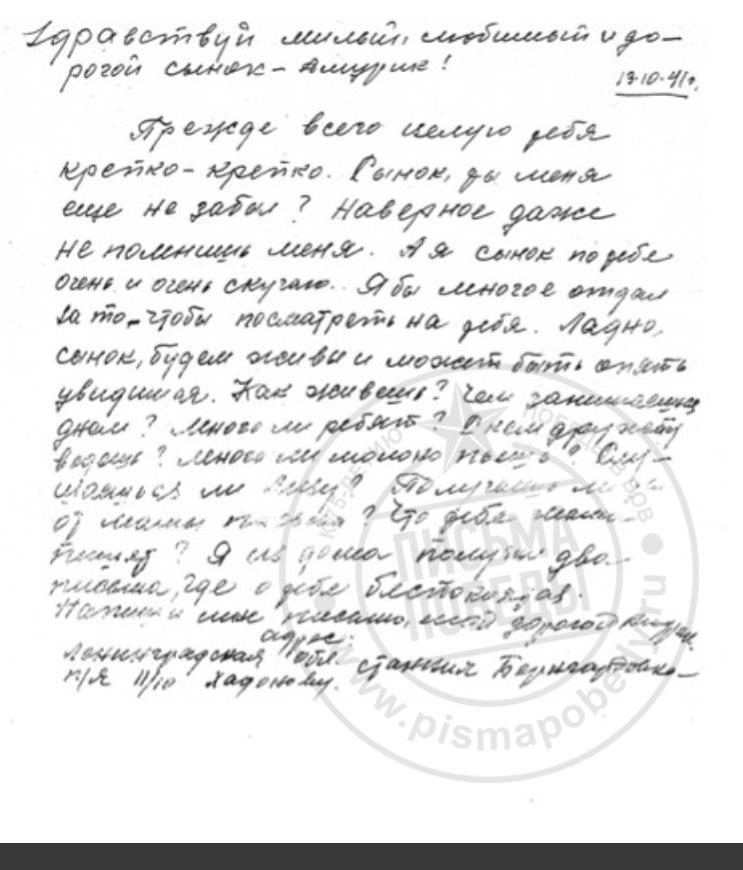 Здравствуй милый, любимый и до-
рогой сынок - Амурик!
13.10.41 г.
Прежде всего целую тебя
крепко-крепко. Сынок, ты меня
еще не забыл? Наверное даже
не помнишь меня. А я сынок по тебе
очень и очень скучаю. Я бы многое отдал
за то, чтобы посмотреть на тебя. Ладно,
сынок, будем живы и может быть опять
увидимся. Как живешь? Чем занимаешься
днем? Много ли ребят? С кем дружбу
ведешь? Много ли молоко пьешь? Слу-
шаешься ли? Получаешь ли
от мамы письма? Что тебе мама
пишет? Я из дома получил два
письма, где о тебе беспокоятся.
Напиши мне письмо, мой дорогой
адрес:
Ленинградская обл. станция
п/я 11/10 Хадонову.
К 75-ЛЕТИЮ ПОБЕДЫ В ВОВ
ПИСЬМА
ПОБЕДЫ
www.pismapobedy.ru